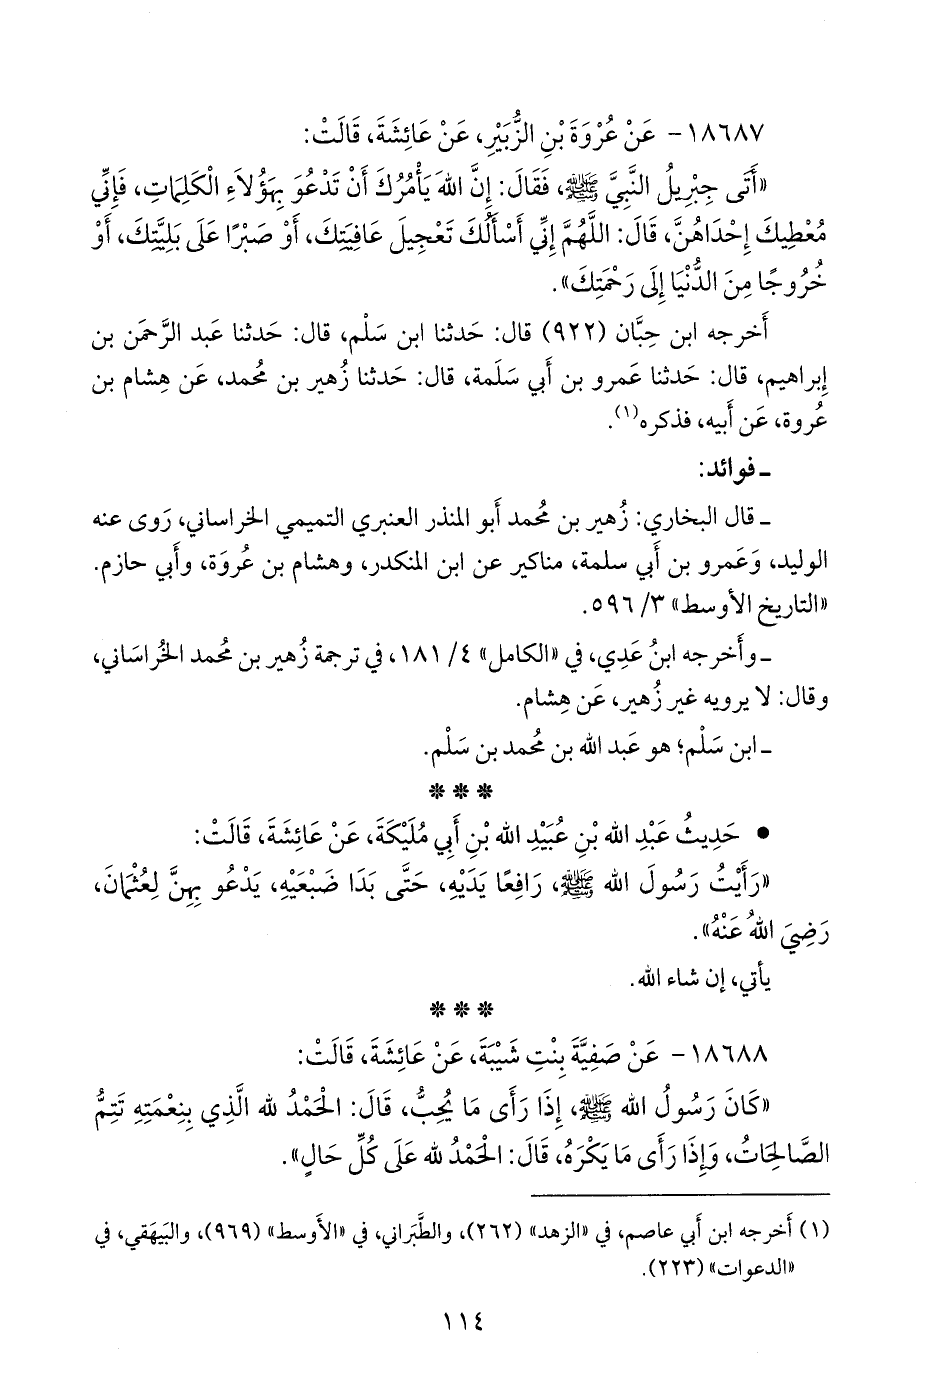 ١٨٦٨٧- عَنْ عُرْوَةَ بْنِ الزُّبَيْرِ، عَنْ عَائِشَةَ، قَالَتْ:
«أَتَى جِبْرِيلُ النَّبِيَّ ﷺ، فَقَالَ: إِنَّ اللهَ يَأْمُرُكَ أَنْ تَدْعُوَ بِهَؤُلَاءِ الْكَلِمَاتِ، فَإِنِّي
مُعْطِيكَ إِحْدَاهُنَّ، قَالَ: اللَّهُمَّ إِنِّي أَسْأَلُكَ تَعْجِيلَ عَافِيَتِكَ، أَوْ صَبْرًا عَلَى بَلِيَّتِكَ، أَوْ
خُرُوجًا مِنَ الدُّنْيَا إِلَى رَحْمَتِكَ».
أَخرجه ابن حِبَّان (٩٢٢) قال: حَدثنا ابن سَلْم، قال: حَدثنا عَبد الرَّحمَن بن
إِبراهيم، قال: حَدثنا عَمرو بن أَبي سَلَمة، قال: حَدثنا زُهير بن مُحمد، عَن هِشام بن
عُروة، عَن أَبيه، فذكره(١).
ـ فوائد:
ـ قال البخاري: زُهير بن مُحمد أَبو المنذر العنبري التميمي الخراساني، رَوى عنه
الوليد، وَعَمرو بن أَبي سلمة، مناكير عن ابن المنكدر، وهشام بن عُروَة، وأَبي حازم.
«التاريخ الأوسط» ٣/ ٥٩٦.
ـ وأَخرجه ابنُ عَدِي، في «الكامل» ٤/ ١٨١، في ترجمة زُهير بن مُحمد الخُراسَاني،
وقال: لا يرويه غير زُهير، عَن هِشام.
ـ ابن سَلْم؛ هو عَبد الله بن مُحمد بن سَلْم.
* * *
• حَدِيثُ عَبْدِ الله بْنِ عُبَيْدِ الله بْنِ أَبِي مُلَيْكَةَ، عَنْ عَائِشَةَ، قَالَتْ:
«رَأَيْتُ رَسُولَ الله ﷺ، رَافِعًا يَدَيْهِ، حَتَّى بَدَا ضَبْعَيْهِ، يَدْعُو بِهِنَّ لِعُثْمَانَ،
رَضِيَ اللهُ عَنْهُ».
يأتي، إن شاء الله.
* * *
١٨٦٨٨- عَنْ صَفِيَّةَ بِنْتِ شَيْبَةَ، عَنْ عَائِشَةَ، قَالَتْ:
«كَانَ رَسُولُ الله ﷺ، إِذَا رَأَى مَا يُحِبُّ، قَالَ: الْحَمْدُ لله الَّذِي بِنِعْمَتِهِ تَتِمُّ
الصَّالِحَاتُ، وَإِذَا رَأَى مَا يَكْرَهُ، قَالَ: الْحَمْدُ لله عَلَى كُلِّ حَالٍ».
(١) أَخرجه ابن أَبي عاصم، في «الزهد» (٢٦٢)، والطَّبَراني، في «الأَوسط» (٩٦٩)، والبَيهَقي، في
«الدعوات» (٢٢٣).
١١٤